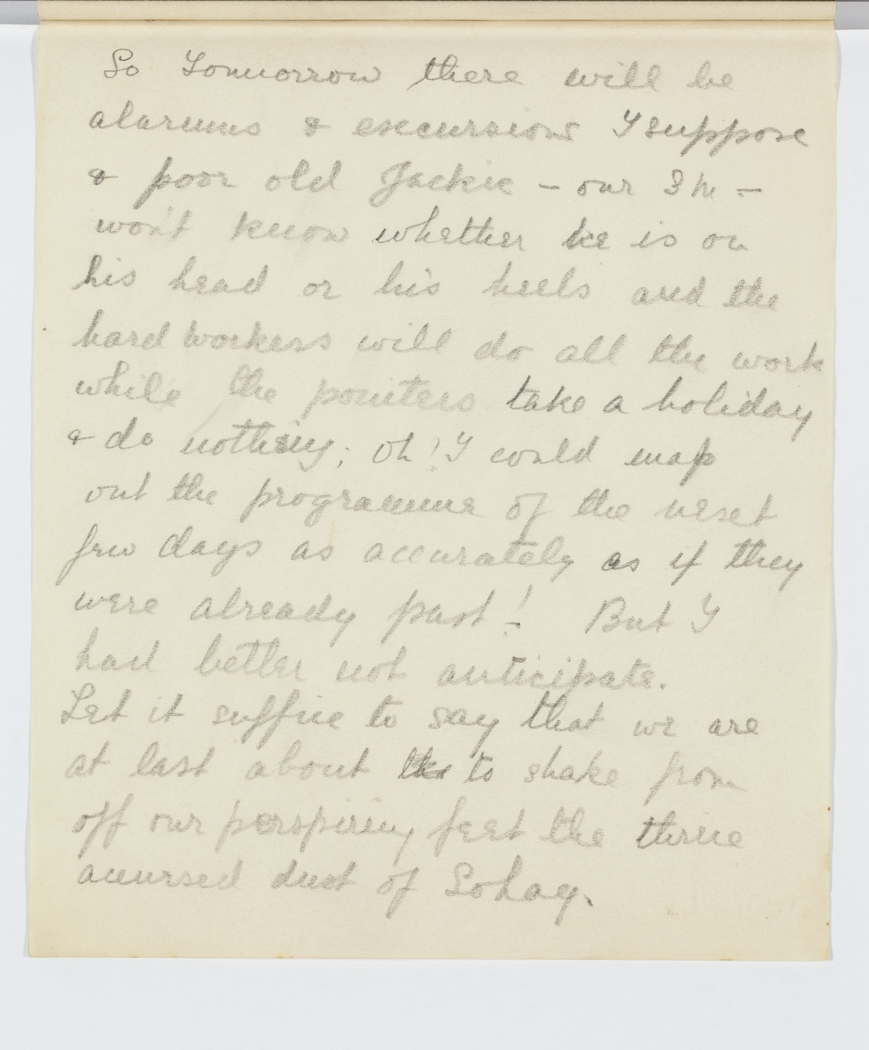 So Tomorrow there will be
alarums & excursions I suppose
& poor old Jackie - our S M -
won't know whether he is on
his head or his heels and the
hard workers will do all the work
while the pointers take a holiday
& do nothing; Oh! I could map
out the programme of the next
few days as accurately as if they
were already past! But I
had better not anticipate.
Let it suffice to say that we are
at last about to shake from
off our perspiring feet the thrice
accursed dust of Sohag.